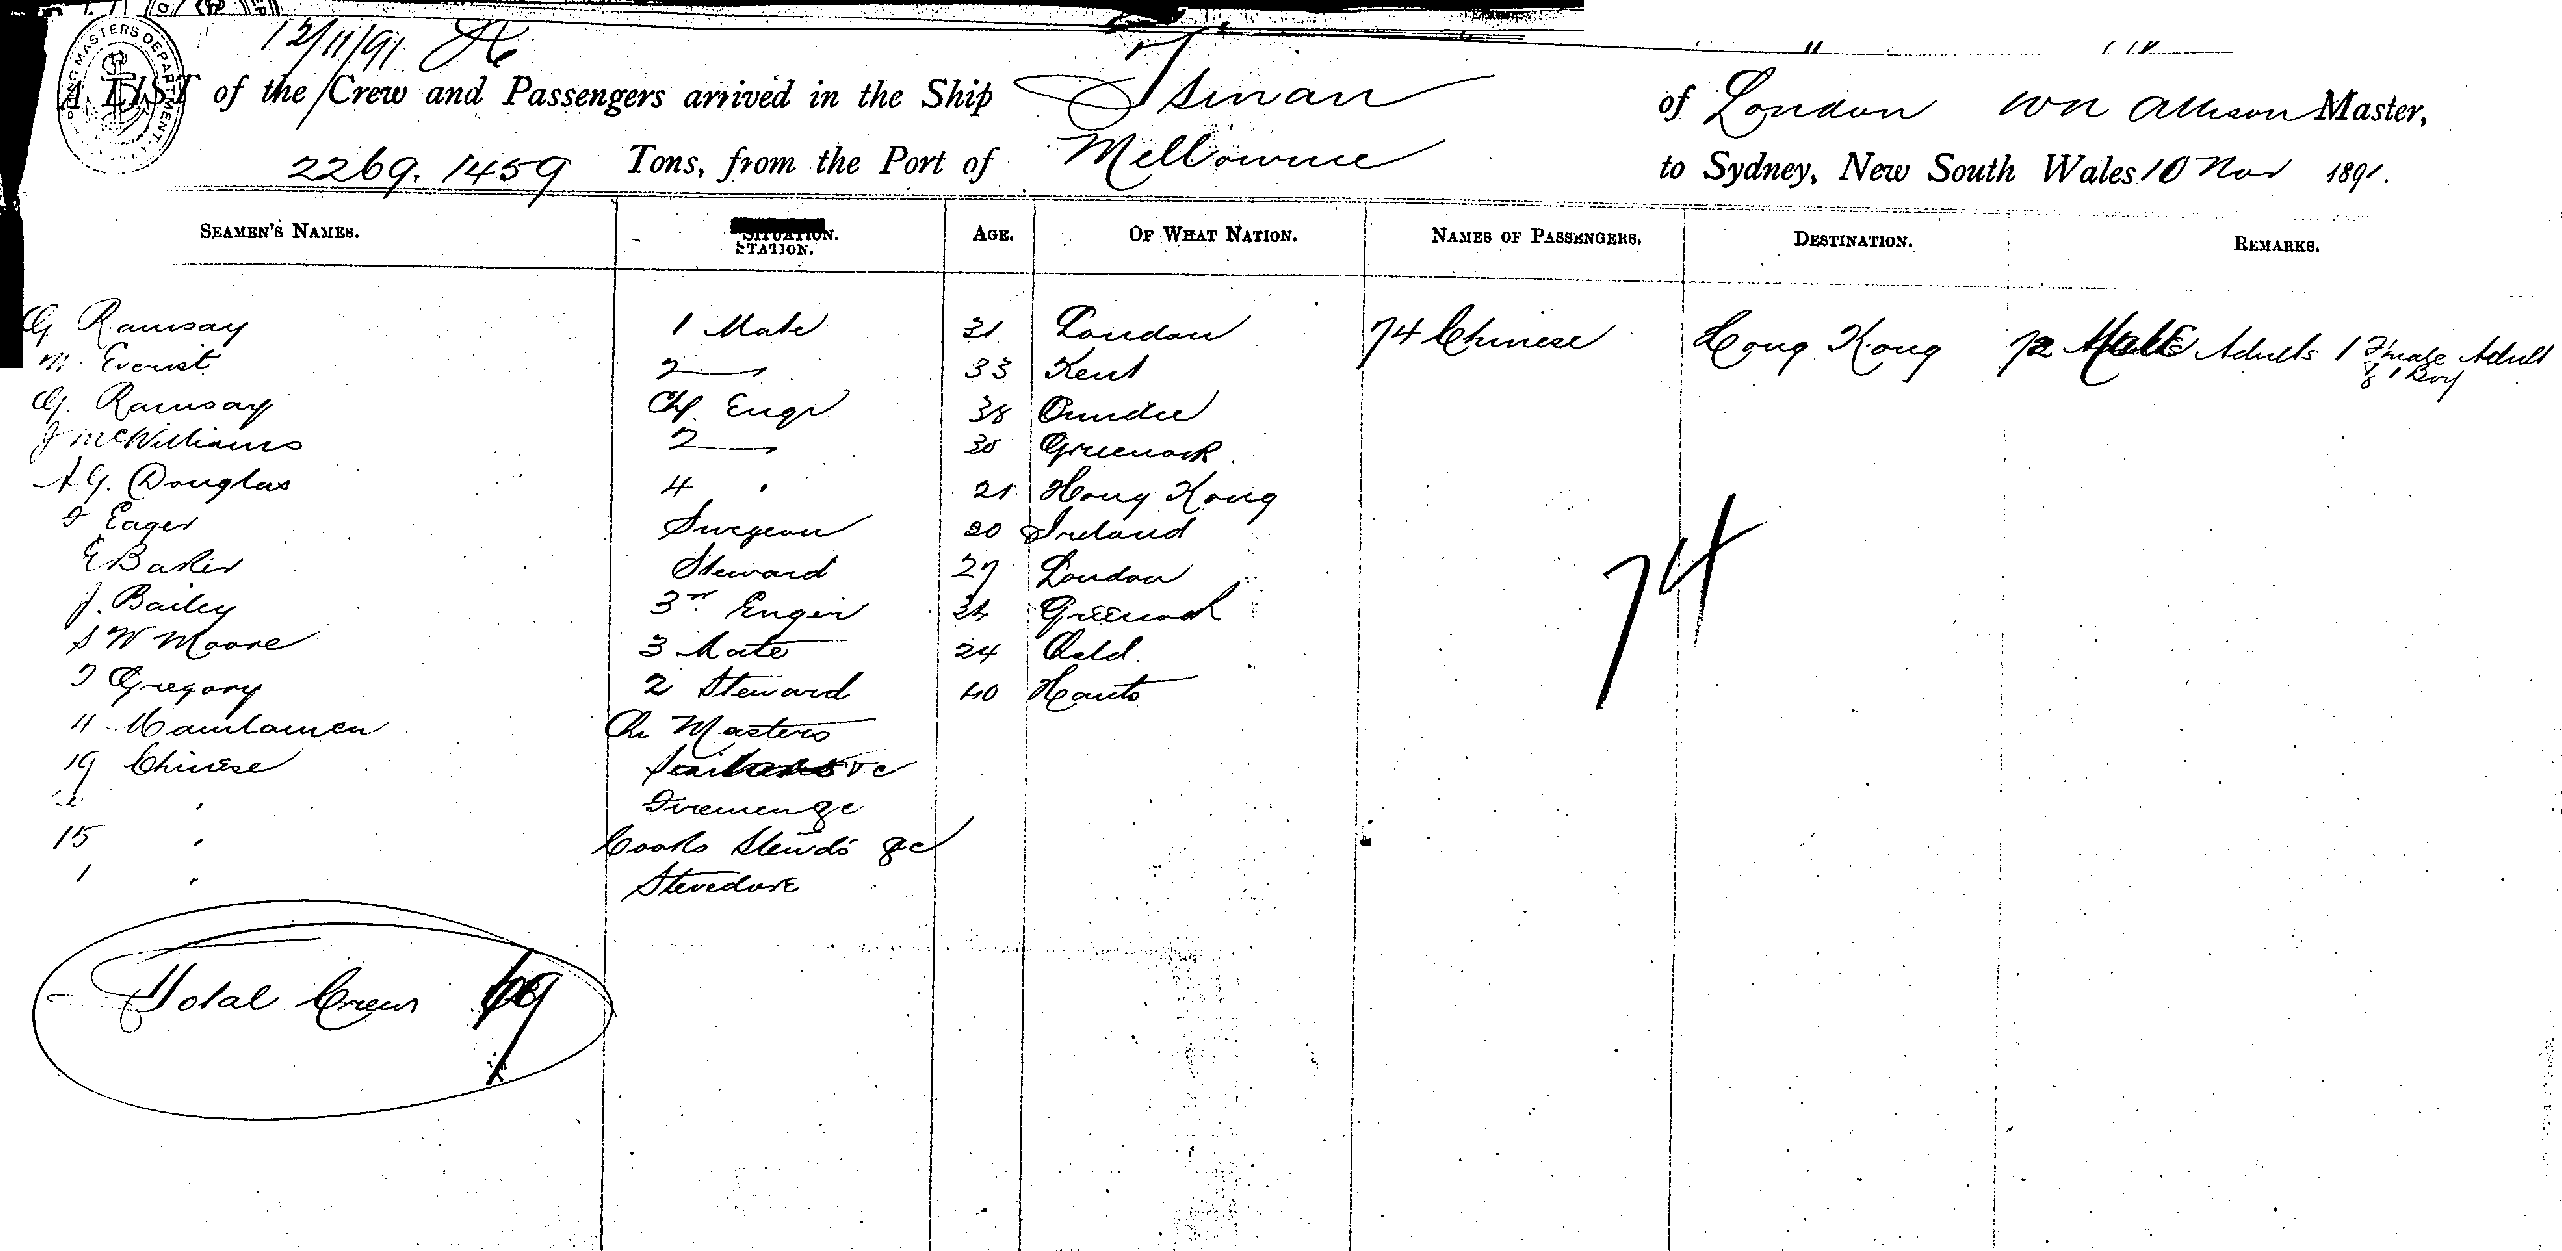 12/11/91
A LIST of the Crew and Passengers arrived in the Ship Tsinan of London WN Allison Master,
2269. 1459 Tons, from the Port of Melbourne to Sydney, New South Wales 10 Nov 1891.
SEAMEN'S NAMES. SITUATION. STATION. AGE. OF WHAT NATION. NAMES OF PASSENGERS. DESTINATION. REMARKS.
G Ramsay 1 Mate 31 London 74 Chinese Hong Kong 72 Male Adults 1 Female Adult
& 1 Boy
M. Everist 2 — 33 Kent
G. Ramsay Ch. Engr 38 Dundee
J McWilliams 2 — 30 Greenock
A G. Douglas 4 " 21 Hong Kong
Eager Surgeon 30 Ireland
E Baker Steward 27 London
J. Bailey 3rd Engir Greenock
S W Moore 3 Mate 24 Qeld.
Gregory 2 Steward 40 Hants
74
4 Manilamen Qr Masters
19 Chinese Sailors &c
" Firemen &c
15 " Cooks Stewds &c
1 " Stevedore
Total Crew 69